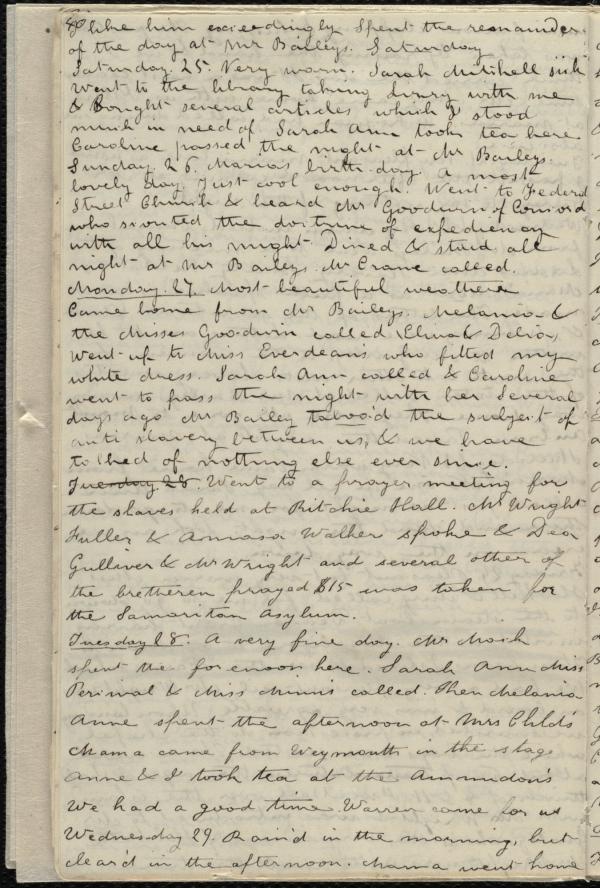 80
I like him exceedingly Spent the remainder
of the day at Mr Baileys. Saturday
Saturday. 25. Very warm. Sarah Mitchell sick
Went to the library taking Henry with me
& Bought several articles which I stood
much in need of Sarah Ann took tea here
Caroline passed the night at Mr Baileys.
Sunday 26. Maria's birth day. A most
lovely day. Just cool enough. Went to Federal
Street Church & heard Mr Goodwin of Concord
who scouted the doctrine of expediency
with all his might. Dined & staid all
night at Mr Baileys. Mr Crane called.
Monday. 27. Most beautiful weather
Came home from Mr Baileys. Melania &
the Misses Goodwin called (Eliza & Delia)
Went up to Miss Everdeans who fitted my
white dress. Sarah Ann called & Caroline
went to pass the night with her Several
days ago Mr Bailey tabood the subject of
anti slavery between us, & we have
talked of nothing else ever since.
Tuesday 28. Went to a prayer meeting for
the slaves held at Ritchie Hall. Mr Wright
Fuller & Amasa Walker spoke & Dea
Gulliver & Mr Wright and several other of
the bretheren prayed $15 was taken for
the Samaritan Asylum.
Tuesday 28. A very fine day. Mr Mack
spent the forenoon here. Sarah Ann Miss
Perival & Miss Minns called. Then Melania
Anne spent the afternoon at Mrs Child's
Mama came from Weymouth in the stage
Anne & I took tea at the Ammidon's
We had a good time Warren came for us
Wednesday 29. Rain'd in the morning, but
clear'd in the afternoon. Mama went home